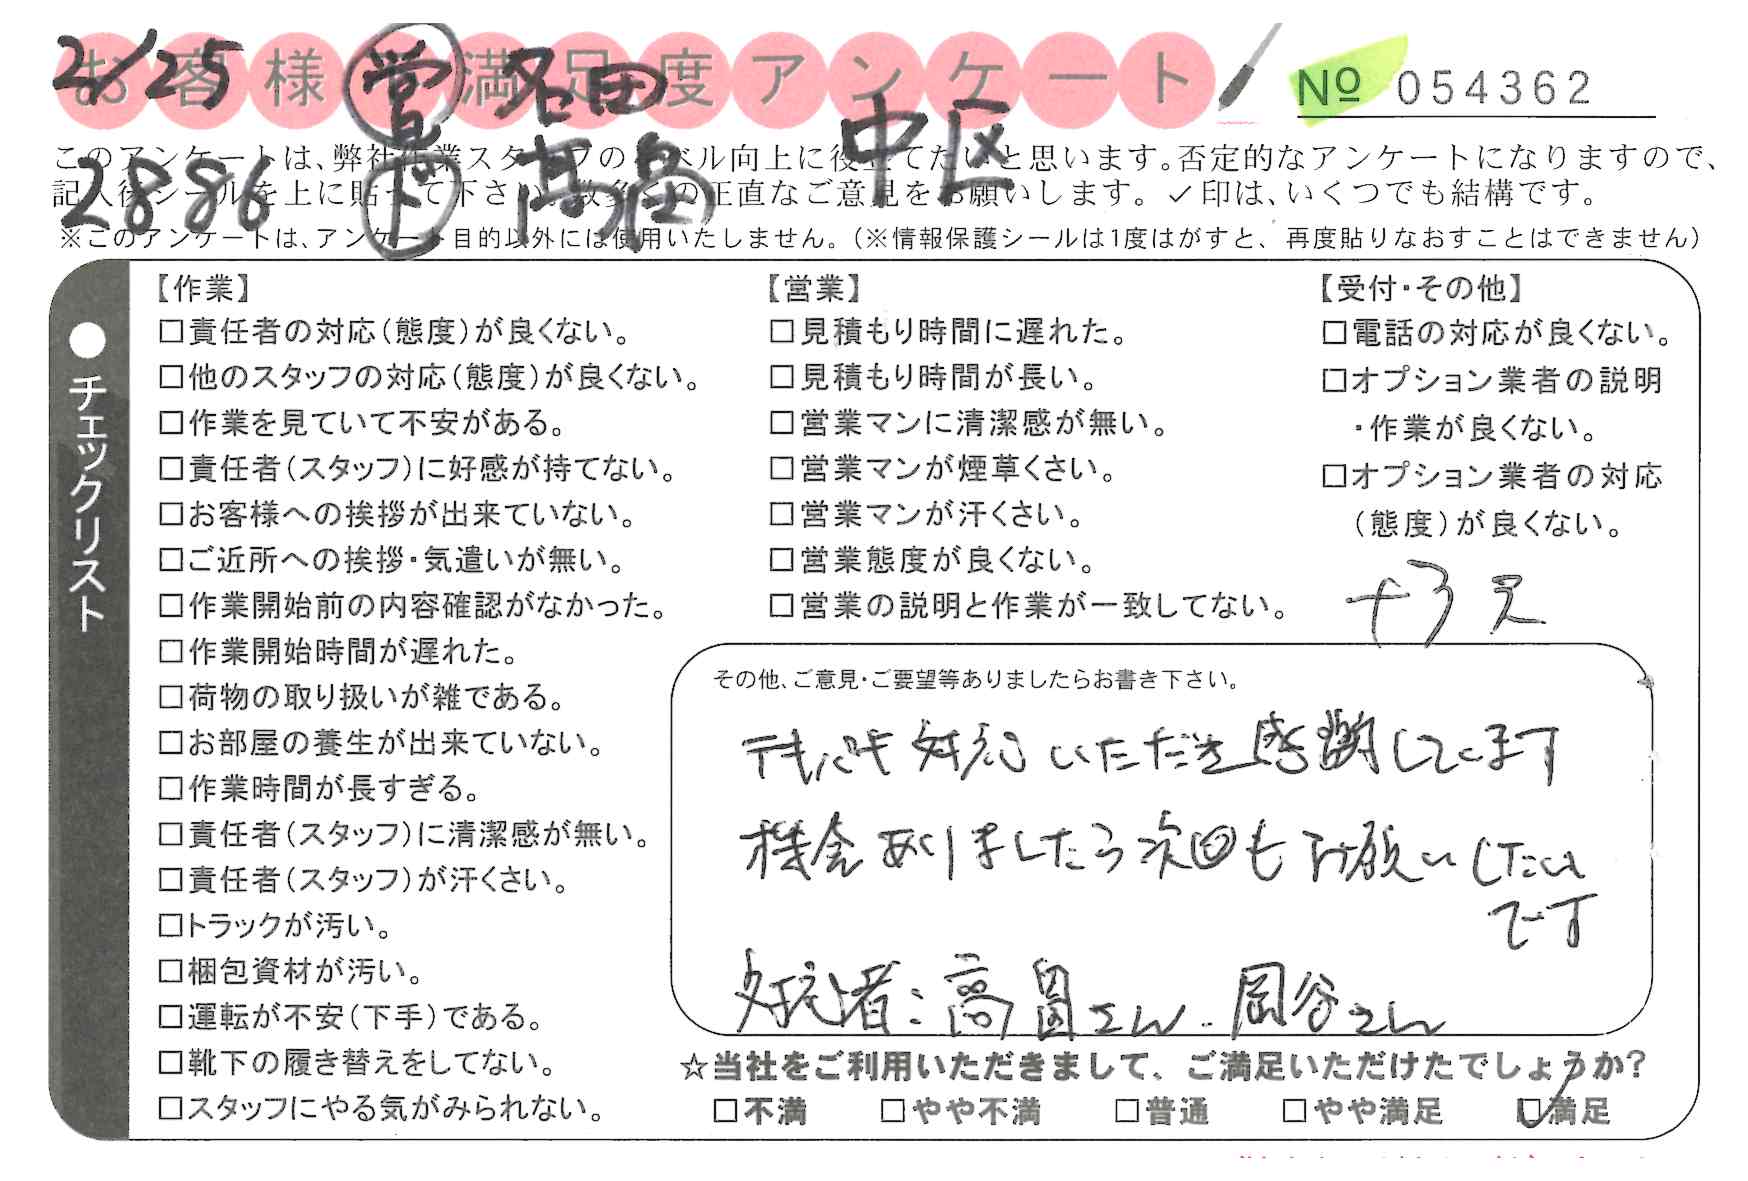 お客様満足度アンケート
№ 054362
2/25 営 名田 中区
2886 ド 高畠
このアンケートは、弊社作業スタッフのレベル向上に役立てたいと思います。否定的なアンケートになりますので、
記入後シールを上に貼って下さい。数多くの正直なご意見をお願いします。✓印は、いくつでも結構です。
※このアンケートは、アンケート目的以外には使用いたしません。(※情報保護シールは1度はがすと、再度貼りなおすことはできません)
●チェックリスト
【作業】
□責任者の対応(態度)が良くない。
□他のスタッフの対応(態度)が良くない。
□作業を見ていて不安がある。
□責任者(スタッフ)に好感が持てない。
□お客様への挨拶が出来ていない。
□ご近所への挨拶・気遣いが無い。
□作業開始前の内容確認がなかった。
□作業開始時間が遅れた。
□荷物の取り扱いが雑である。
□お部屋の養生が出来ていない。
□作業時間が長すぎる。
□責任者(スタッフ)に清潔感が無い。
□責任者(スタッフ)が汗くさい。
□トラックが汚い。
□梱包資材が汚い。
□運転が不安(下手)である。
□靴下の履き替えをしてない。
□スタッフにやる気がみられない。
【営業】
□見積もり時間に遅れた。
□見積もり時間が長い。
□営業マンに清潔感が無い。
□営業マンが煙草くさい。
□営業マンが汗くさい。
□営業態度が良くない。
□営業の説明と作業が一致してない。
【受付・その他】
□電話の対応が良くない。
□オプション業者の説明
・作業が良くない。
□オプション業者の対応
(態度)が良くない。
その他、ご意見・ご要望等ありましたらお書き下さい。
テキパキ対応いただき感謝しています
機会ありましたら次回もお願いしたい
です
対応者:高畠さん、岡谷さん
☆当社をご利用いただきまして、ご満足いただけたでしょうか?
□不満 □やや不満 □普通 □やや満足 ☑満足